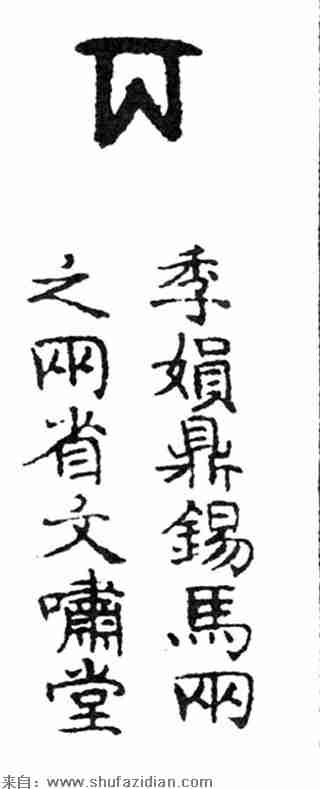 季娟鼎錫馬兩
之兩省文嘯堂
来自：www.shufazidian.com